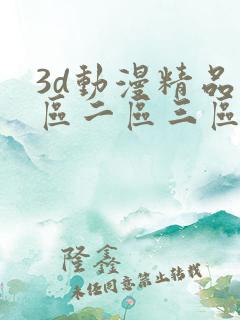 3d動漫精品
區二區三區
隆鑫
未经同意禁止转载